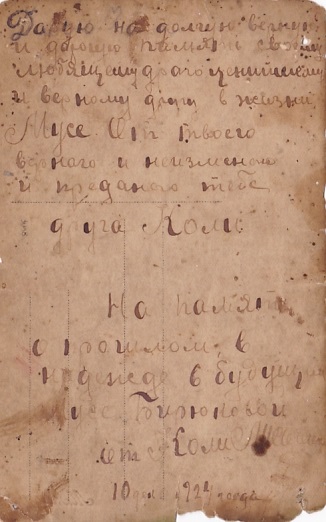 Дарую на долгую вечную
и дорогую память своему
любящему драгоценнейшему
и верному другу в жизни
Мусе От твоего
верного и неизменого
и преданого тебе
друга Коли
На память
о прошлом, в
надежде в будущем
Мусе Бирюковой
от Коли
10 192 года